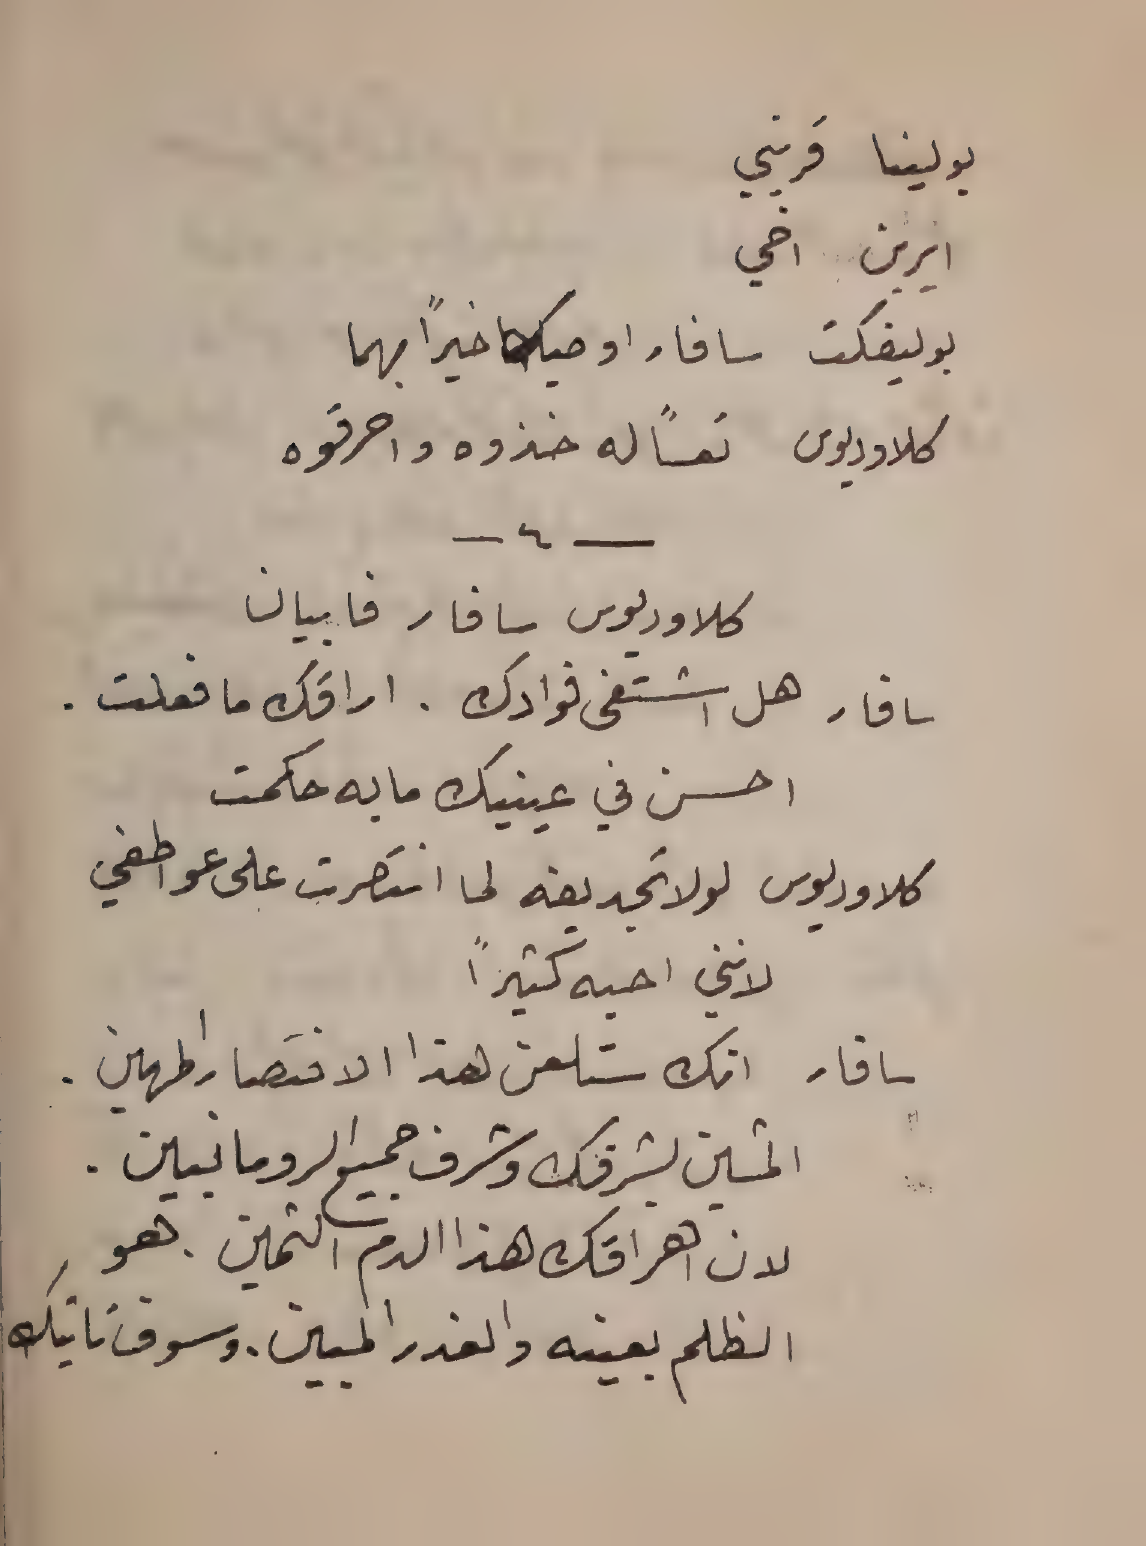 بولينا قريني
ايرين اخي
بوليفكت سافار اوصيك خيراً بهما
كلاوديوس تعساً له خذوه واحرقوه
— ٤ —
كلاوديوس سافار فابيان
سافار هل اشتفى فوادك . اراقك ما فعلت .
احسن في عينيك ما به حكمت
كلاوديوس لولا تجديفه لما انتصرت على عواطفي
لانني احبه كثيراً
سافار انك ستلعن هذا الانتصار المهين .
المشين لشرفك وشرف جميع الرومانيين .
لان اهراقك هذا الدم الثمين . هو
الظلم بعينه والغدر المبين . وسوف تاتيك